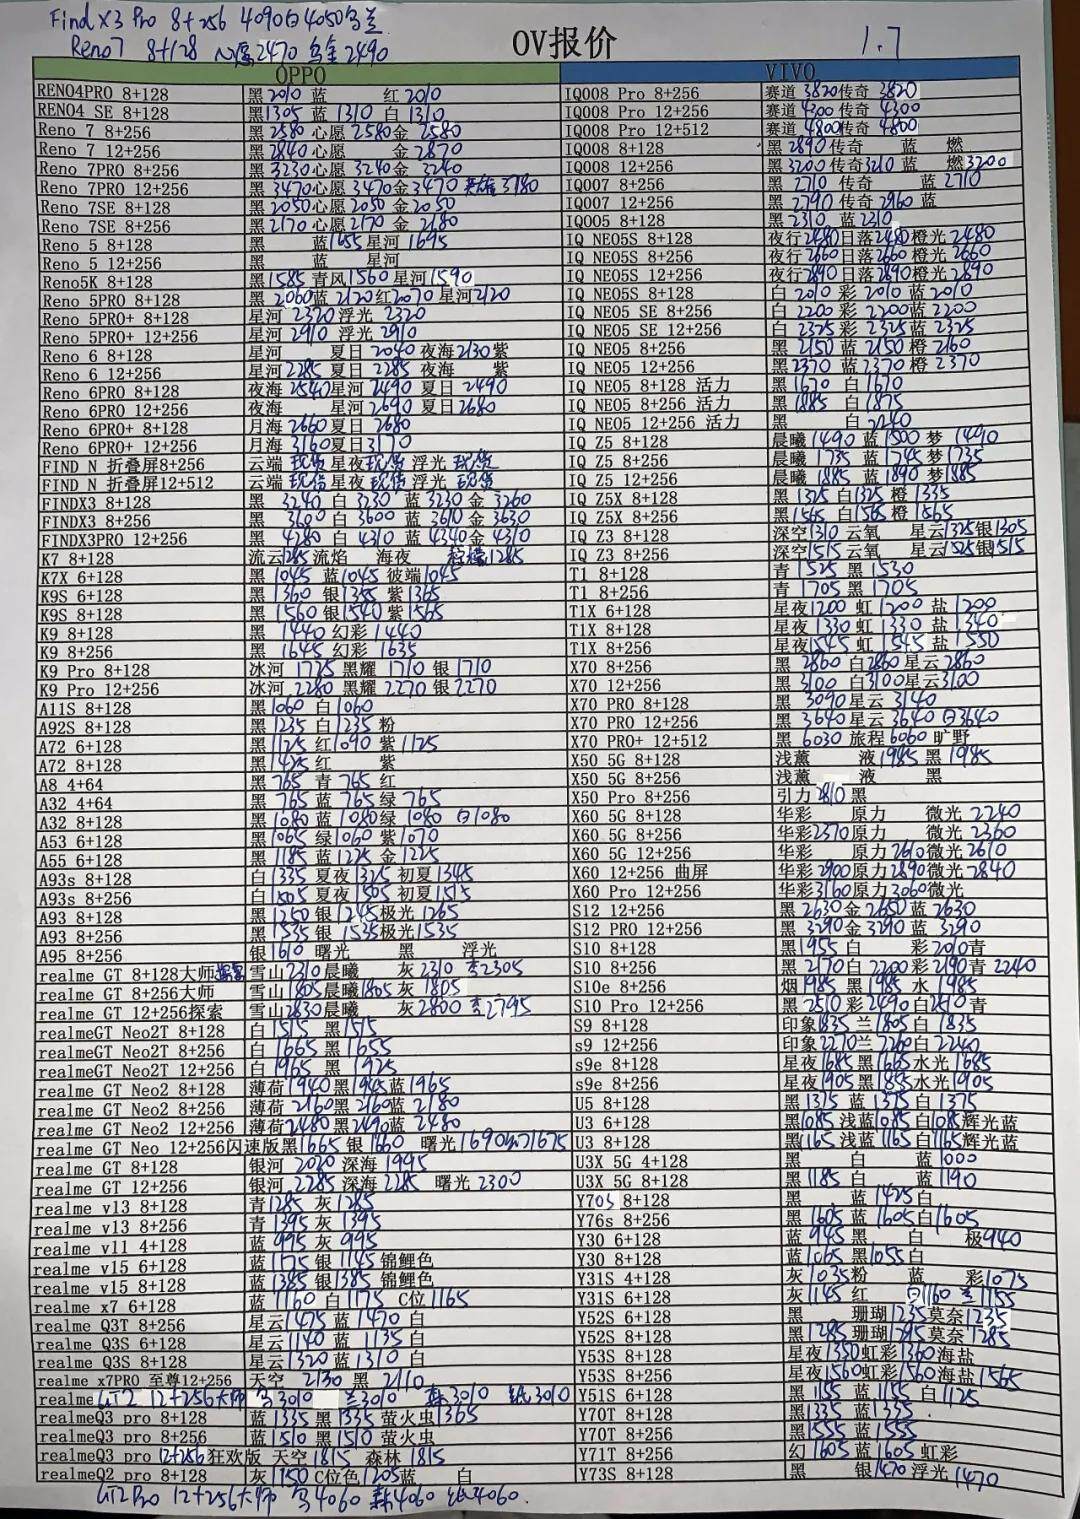 Find X3 Pro 8+256 4090白4050乌兰
Reno7 8+128 心愿2470 乌金2490
OV报价 1.7
OPPO
RENO4PRO 8+128 黑2010 蓝 红2010
RENO4 SE 8+128 黑1305 蓝1310 白1310
Reno 7 8+256 黑2580心愿2580金2580
Reno 7 12+256 黑2840心愿 金2870
Reno 7PRO 8+256 黑3230心愿3240金3240
Reno 7PRO 12+256 黑3470心愿3470金3470 英雄3780
Reno 7SE 8+128 黑2050心愿2050金2050
Reno 7SE 8+256 黑2170心愿2170 金2180
Reno 5 8+128 黑 蓝1655星河1695
Reno 5 12+256 黑 蓝 星河
Reno5K 8+128 黑1585 青风1560星河1590
Reno 5PRO 8+128 黑2060蓝2120红2070星河2120
Reno 5PRO+ 8+128 星河2320浮光2320
Reno 5PRO+ 12+256 星河2910 浮光2910
Reno 6 8+128 星河 夏日2040夜海2130紫
Reno 6 12+256 星河2285夏日2285夜海 紫
Reno 6PRO 8+128 夜海2540星河2490夏日2490
Reno 6PRO 12+256 夜海 星河2690夏日2680
Reno 6PRO+ 8+128 月海2660夏日2680
Reno 6PRO+ 12+256 月海3160夏日3170
FIND N 折叠屏8+256 云端现货星夜现货浮光现货
FIND N 折叠屏12+512 云端现货星夜现货浮光现货
FINDX3 8+128 黑3240白3230蓝3230金3260
FINDX3 8+256 黑3600白3600蓝3610金3630
FINDX3PRO 12+256 黑4280白4310蓝4340金4310
K7 8+128 流云1285流焰 海夜 柠檬1285
K7X 6+128 黑1045 蓝1045彼端1045
K9S 6+128 黑1360 银1355 紫1365
K9S 8+128 黑1560银1540紫1565
K9 8+128 黑1440幻彩1440
K9 8+256 黑1645幻彩1635
K9 Pro 8+128 冰河1725黑耀1710银1710
K9 Pro 12+256 冰河2280黑耀2270银2270
A11S 8+128 黑1060白1060
A92S 8+128 黑1235白1235粉
A72 6+128 黑1125红1090紫1125
A72 8+128 黑1425红 紫
A8 4+64 黑765 青765红
A32 4+64 黑765蓝765绿765
A32 8+128 黑1080蓝1080绿1080 白1080
A53 6+128 黑1065绿1060紫1070
A55 6+128 黑1185蓝1225金1225
A93s 8+128 白1335夏夜1325初夏1345
A93s 8+256 白1505夏夜1505初夏1515
A93 8+128 黑1250银1245极光1265
A93 8+256 黑1535银1535极光1535
A95 8+256 银1610曙光 黑 浮光
realme GT 8+128大师探索 雪山2310晨曦 灰2310 杏2305
realme GT 8+256大师 雪山1805晨曦1805灰1805
realme GT 12+256探索 雪山2830晨曦 灰2800杏2795
realmeGT Neo2T 8+128 白1515 黑1515
realmeGT Neo2T 8+256 白1665黑1655
realmeGT Neo2T 12+256 白1965黑1925
realme GT Neo2 8+128 薄荷1940黑1945蓝1965
realme GT Neo2 8+256 薄荷2160黑2160蓝2180
realme GT Neo2 12+256 薄荷2480黑2490蓝2480
realme GT Neo 12+256闪速版黑1665银1660 曙光1690幻1675
realme GT 8+128 银河2020深海1995
realme GT 12+256 银河2285深海2285曙光2300
realme v13 8+128 青1285灰1285
realme v13 8+256 青1395灰1395
realme v11 4+128 蓝995灰995
realme v15 6+128 蓝1175银1145锦鲤色
realme v15 8+128 蓝1385银1385锦鲤色
realme x7 6+128 蓝1160白1175 C位1165
realme Q3T 8+256 星云1475蓝1470白
realme Q3S 6+128 星云1140蓝1135白
realme Q3S 8+128 星云1320蓝1310白
realme x7PRO 至尊12+256 天空2130黑2110
realme GT2 12+256大师 乌3010 兰3010 森3010 纸3010
realmeQ3 pro 8+128 蓝1335黑1335萤火虫1365
realmeQ3 pro 8+256 蓝1510黑1510萤火虫
realmeQ3 pro 12+256狂欢版 天空1815 森林1815
realmeQ2 pro 8+128 灰1150C位色1205蓝 白
GT2Pro 12+256大师 乌4060 森4060 纸4060
VIVO
IQOO8 Pro 8+256 赛道3820传奇3820
IQOO8 Pro 12+256 赛道4300传奇4300
IQOO8 Pro 12+512 赛道4800传奇4800
IQOO8 8+128 黑2890传奇 蓝 燃
IQOO8 12+256 黑3200传奇3210蓝 燃3200
IQOO7 8+256 黑2710传奇 蓝2710
IQOO7 12+256 黑2790传奇2960蓝
IQOO5 8+128 黑2310蓝2310
IQ NEO5S 8+128 夜行2480日落2480橙光2480
IQ NEO5S 8+256 夜行2660日落2660橙光2660
IQ NEO5S 12+256 夜行2890日落2890橙光2890
IQ NEO5S 8+128 白2010彩2010蓝2010
IQ NEO5 SE 8+256 白2200彩2200蓝2200
IQ NEO5 SE 12+256 白2325彩2325蓝2325
IQ NEO5 8+256 黑2150蓝2150橙2160
IQ NEO5 12+256 黑2370蓝2370橙2370
IQ NEO5 8+128 活力 黑1670白1670
IQ NEO5 8+256 活力 黑1885白1875
IQ NEO5 12+256 活力 黑 白2240
IQ Z5 8+128 晨曦1490蓝1500梦1490
IQ Z5 8+256 晨曦1735蓝1745梦1735
IQ Z5 12+256 晨曦1885蓝1890梦1885
IQ Z5X 8+128 黑1325白1325橙1335
IQ Z5X 8+256 黑1565白1565橙1565
IQ Z3 8+128 深空1310云氧 星云1325银1305
IQ Z3 8+256 深空1515云氧 星云1525银1515
T1 8+128 青1525黑1530
T1 8+256 青1705黑1705
T1X 6+128 星夜1200虹1200盐1200
T1X 8+128 星夜1330虹1330盐1340
T1X 8+256 星夜1545虹1545盐1550
X70 8+256 黑2860白2860星云2860
X70 12+256 黑3100白3100星云3100
X70 PRO 8+128 黑3090星云3140
X70 PRO 12+256 黑3640星云3640白3640
X70 PRO+ 12+512 黑6030旅程6060旷野
X50 5G 8+128 浅薰 液1985黑1985
X50 5G 8+256 浅薰 液 黑
X50 Pro 8+256 引力2810黑
X60 5G 8+128 华彩 原力 微光2240
X60 5G 8+256 华彩2370原力 微光2360
X60 5G 12+256 华彩 原力2610微光2610
X60 12+256 曲屏 华彩2900原力2890微光2840
X60 Pro 12+256 华彩3160原力3060微光
S12 12+256 黑2630金2650蓝2630
S12 PRO 12+256 黑3290金3290蓝3290
S10 8+128 黑1955白 彩2010青
S10 8+256 黑2170白2200彩2190青2240
S10e 8+256 烟1985黑1985水1985
S10 Pro 12+256 黑2510彩2490白2510青
S9 8+128 印象1835兰1805白1835
s9 12+256 印象2270兰2260白2240
s9e 8+128 星夜1685黑1665水光1685
s9e 8+256 星夜1905黑1855水光1905
U5 8+128 黑1375蓝1375白1375
U3 6+128 黑1085浅蓝1085白1085辉光蓝
U3 8+128 黑1165浅蓝1165白1165辉光蓝
U3X 5G 4+128 黑 白 蓝1000
U3X 5G 8+128 黑1185白 蓝1190
Y70S 8+128 黑 蓝1425白
Y76s 8+256 黑1605蓝1605白1605
Y30 6+128 蓝945黑 白 极940
Y30 8+128 蓝1065黑1055白
Y31S 4+128 灰1035粉 蓝 彩1075
Y31S 6+128 灰1145红 白1160 兰1155
Y52S 6+128 黑 珊瑚1235莫奈1235
Y52S 8+128 黑1285珊瑚1295莫奈1285
Y53S 8+128 星夜1350虹彩1360海盐
Y53S 8+256 星夜1560虹彩1560海盐1565
Y51S 6+128 黑1155蓝1155白1125
Y70T 8+128 黑1335蓝1335
Y70T 8+256 黑1555蓝1555
Y71T 8+256 幻1605蓝1605虹彩
Y73S 8+128 黑 银1470浮光1470